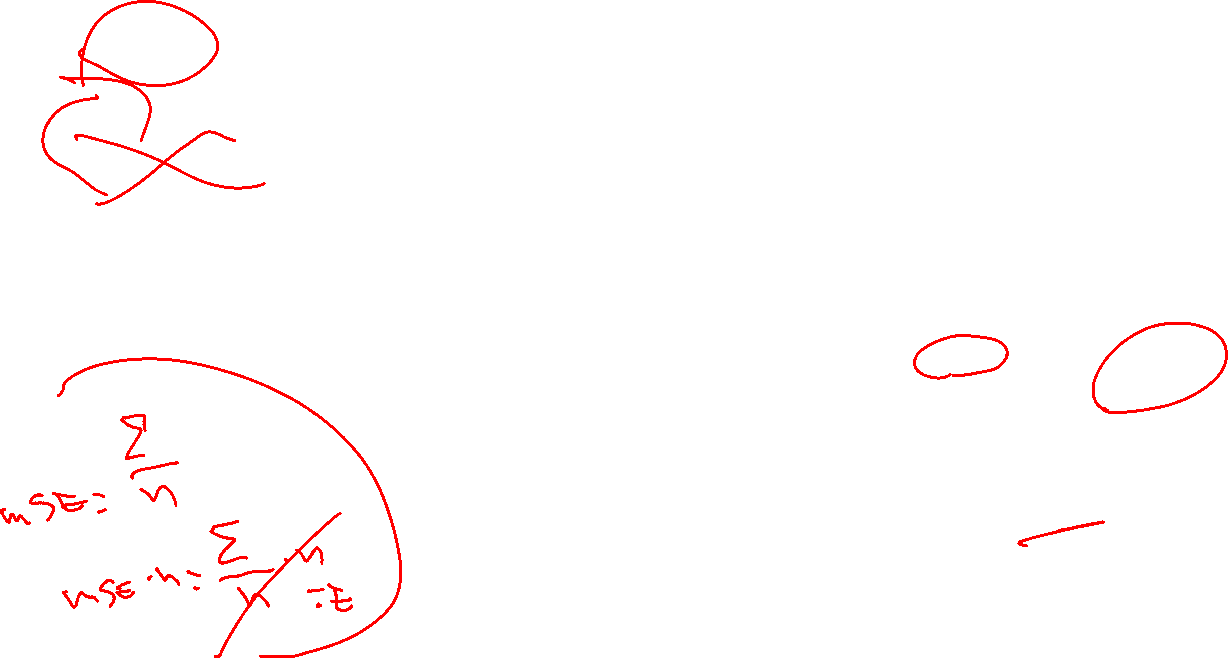 MSE = Σ/n
MSE · n = Σ/n · n = Σ